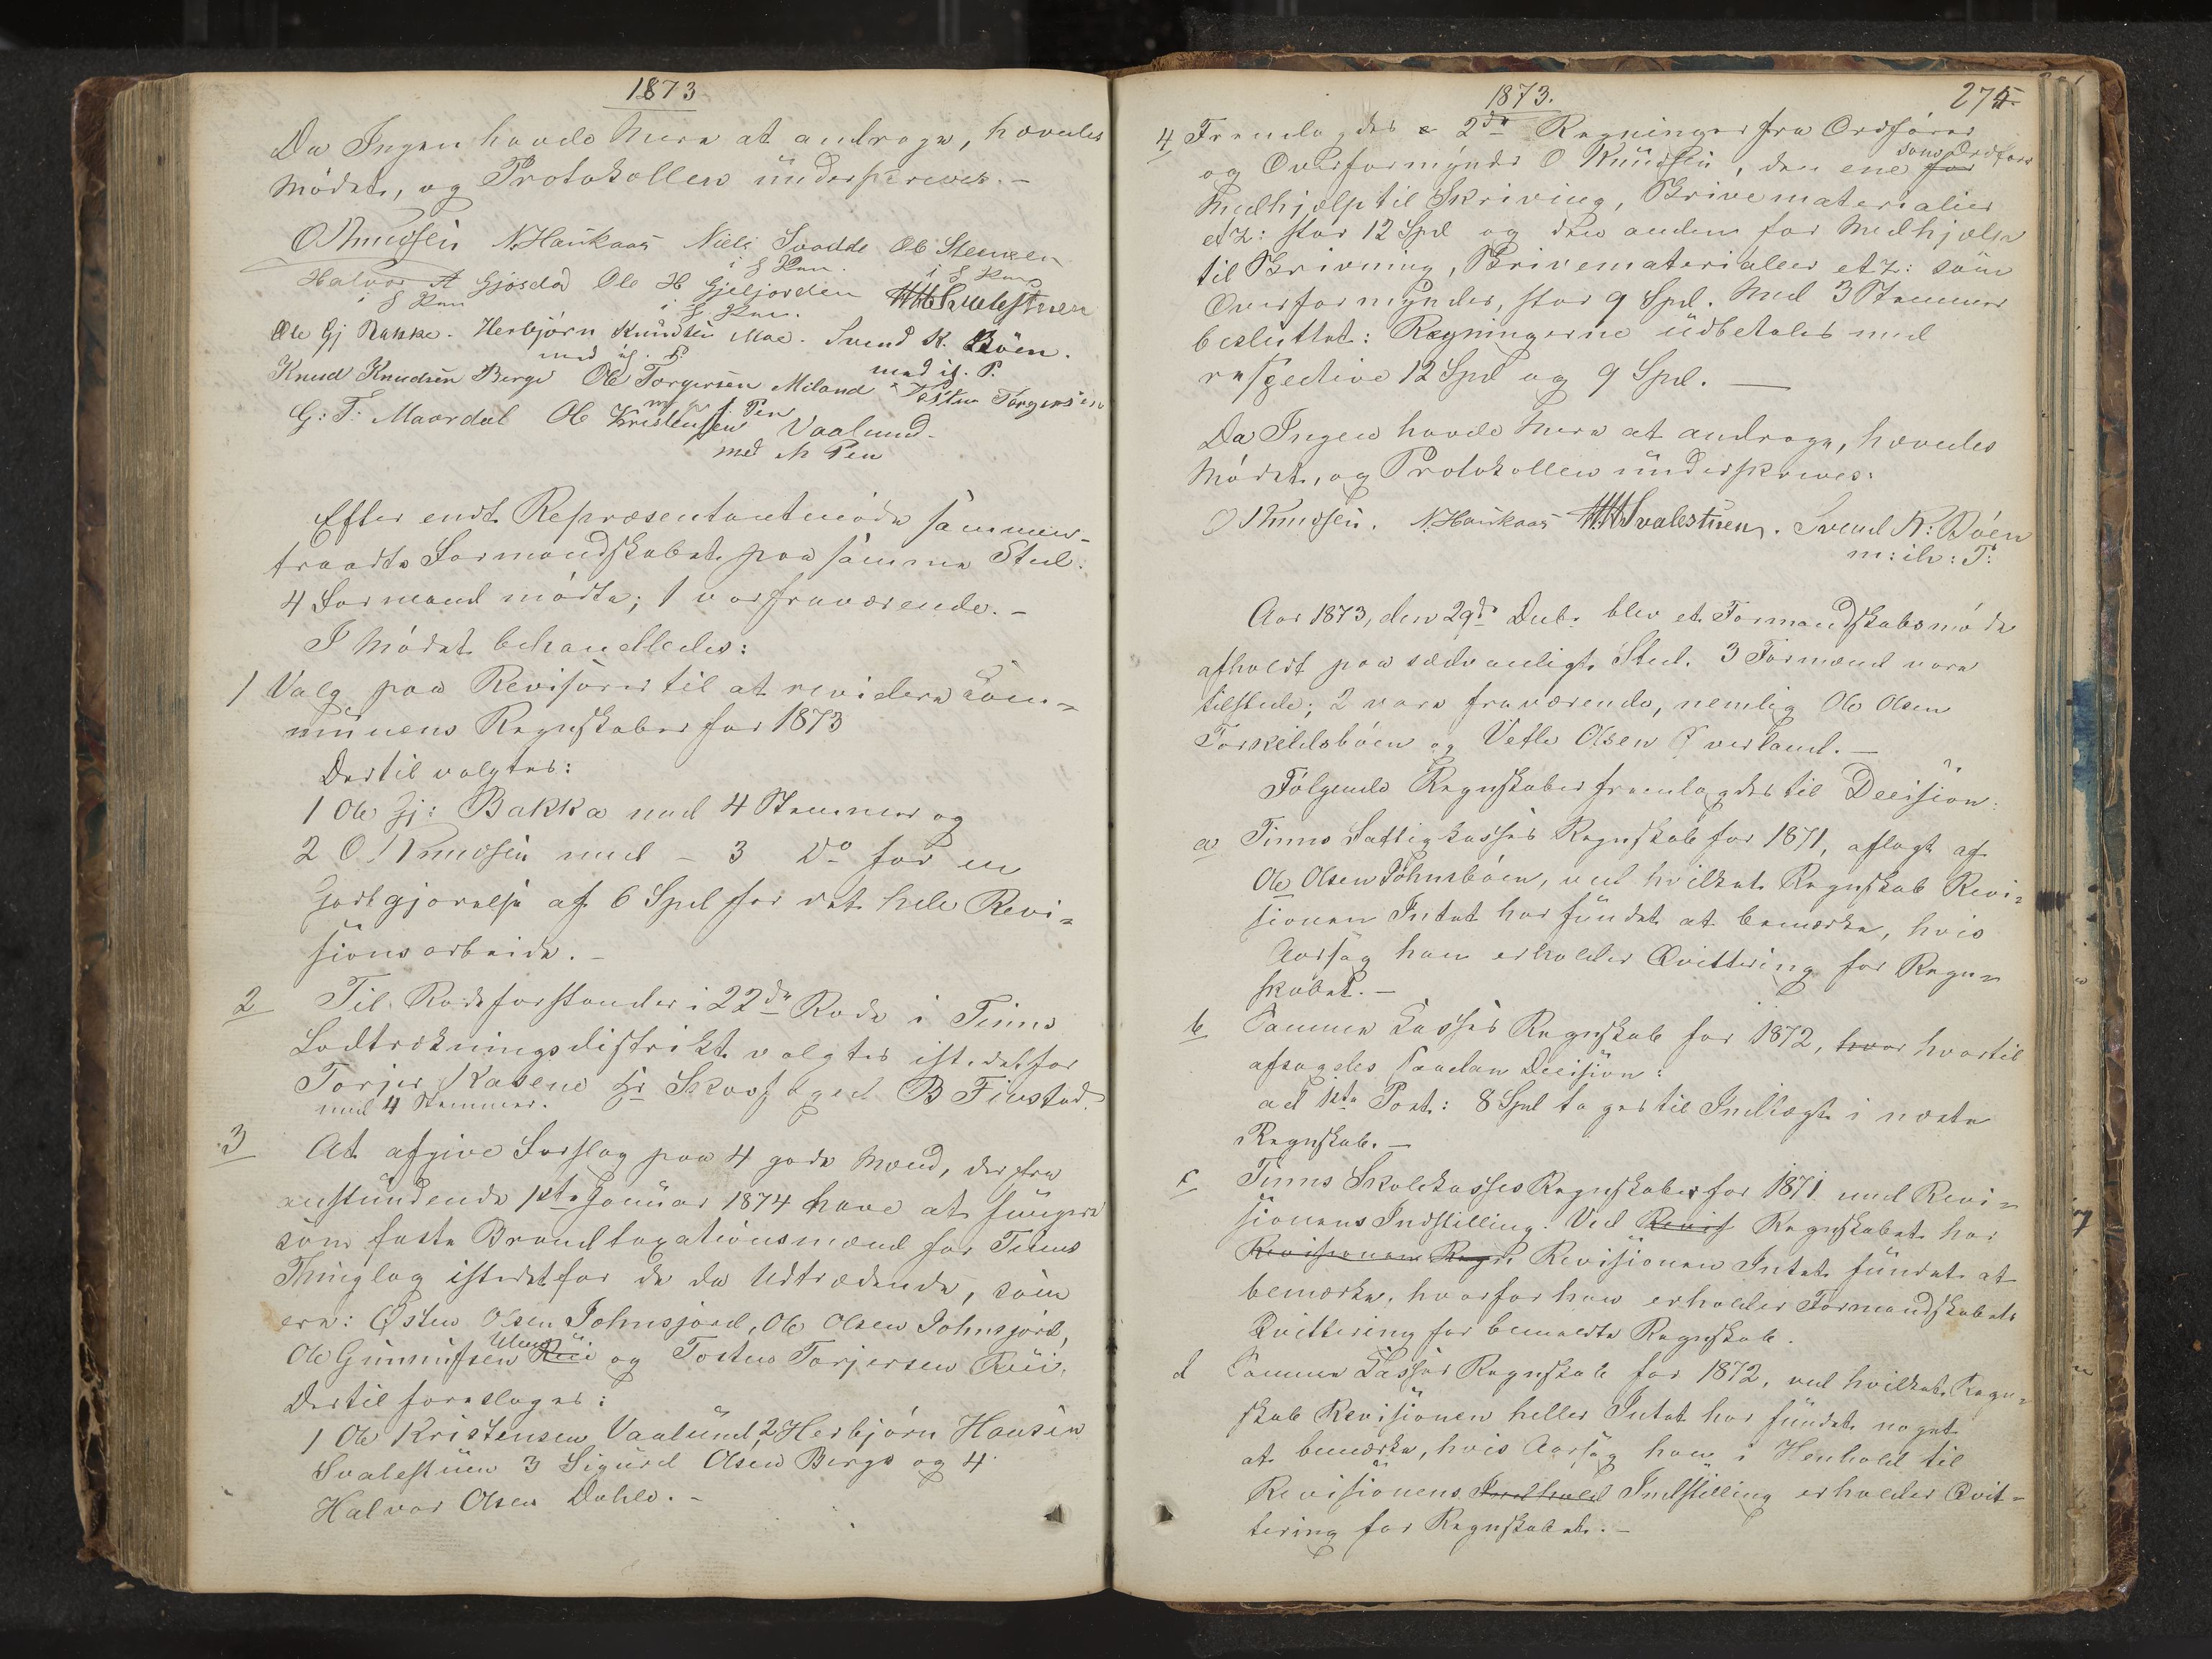 1873
Da Ingen havde mere at andrage, hævedes
Mødet, og Protokollen underskreves. –
O Knudsen N. Haukaas Niels Svadde Ole Steensen
i f Pen. i f Pen
Halvor A Gjøsdal Ole H Gjeljorden HHSvalestuen
i f Pen i f Pen.
Ole Gj Bakke. Herbjørn Knudsen Mae. Svend K. Bøen.
med ih. P. med ih. P.
Knud Knudsen Berge Ole Torgersen Miland Østen Torgersen
G: T: Maardal Ole Kristensen Vaalund.
med ih Pen
Efter endt Repræsentantmøde sammen-
traadte Formandskabet paa samme Sted.
4 Formænd mødte; 1 var fraværende. –
I Mødet behandledes:
1 Valg paa Revisorer til at revidere Com-
munens Regnskaber for 1873
Dertil valgtes:
1 Ole Gj: Bakka med 4 Stemmer og
2 O Knudsen med – 3 Do for en
Godtgjørelse af 6 Spd for det hele Revi-
sionsarbeide. –
2 Til Rodeforstander i 22de Rode i Tinns
Lodtrækningsdistrikt valgtes istedetfor
Torjer Kasene Hr Skovfoged B Finstad.
med 4 Stemmer.
3 At afgive Forslag paa 4 gode Mænd, der fra
anstundende 1ste Januar 1874 have at fungere
som faste Brandtaxationsmænd for Tinns
Thinglag istedetfor de da Udtrædende, som
ere: Østen Olsen Johnsjord, Ole Olsen Johnsjord,
Ole Gunnufsen Rui og Tosten Torjersen Rui.
Dertil foresloges:
1 Ole Kristensen Vaalund, 2 Herbjørn Hansen
Svalestuen 3 Sigurd Olsen Berge og 4
Halvor Olsen Dahle. –
1873. 275
4 Fremlagdes 2de Regninger fra Ordfører
som Ordfører
og Overformynder O Knudsen, den ene for
Medhjælp til Skriving, Skrivematerialier
etz: stor 12 Spd og den anden for Medhjælp
til Skrivning, Skrivematerialier etz: som
Overformynder, stor 9 Spd. Med 3 Stemmer
besluttet: Regningerne udbetales med
respective 12 Spd og 9 Spd. –
Da Ingen havde mere at andrage, hævedes
Mødet, og Protokollen underskreves:
O Knudsen. N. Haukaas HHSvalestuen. Svend K: Bøen
m: ih: P:
Aar 1873, den 29de Decbr blev et Formandskabsmøde
afholdt paa sædvanligt Sted. 3 Formænd vare
tilstede; 2 vare fraværende, nemlig Ole Olsen
Torkeldsbøen og Vetle Olsen Øverland. –
Følgende Regnskaber fremlagdes til Decision:
a Tinns Fattigkasses Regnskab for 1871, aflagt af
Ole Olsen Johnsbøen, ved hvilket Regnskab Revi-
sionen Intet har fundet at bemærke, hvis
Aarsag han erholder Qvittering for Regn-
skabet. –
b Samme Casses Regnskab for 1872, hvor hvortil
afsagdes saadan Decision:
ad 1ste Post: 8 Spd tages til Indtægt i næste
Regnskab. –
c Tinns Skolekasses Regnskaber for 1871 med Revi-
sionens Indstilling. Ved Revis Regnskabet har
Revisionen Regn Revisionen Intet fundet at
bemærke, hvorfor han erholder Formandskabets
Qvittering for bemeldte Regnskab.
d Samme Casses Regnskab for 1872, ved hvilket Regn-
skab Revisionen heller Intet har fundet noget
at bemærke, hvis Aarsag han i Henhold til
Revisionens Indstilling erholder Qvit-
tering for Regnskabet. –